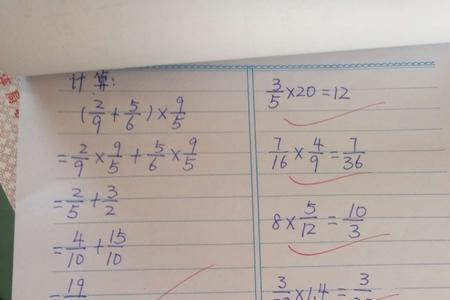 计算:
(2/9+5/6)×9/5
=2/9×9/5+5/6×9/5
=2/5+3/2
=4/10+15/10
=19
3/5×20=12
7/16×4/9=7/36
8×5/12=10/3
3/ ×1.4=3/